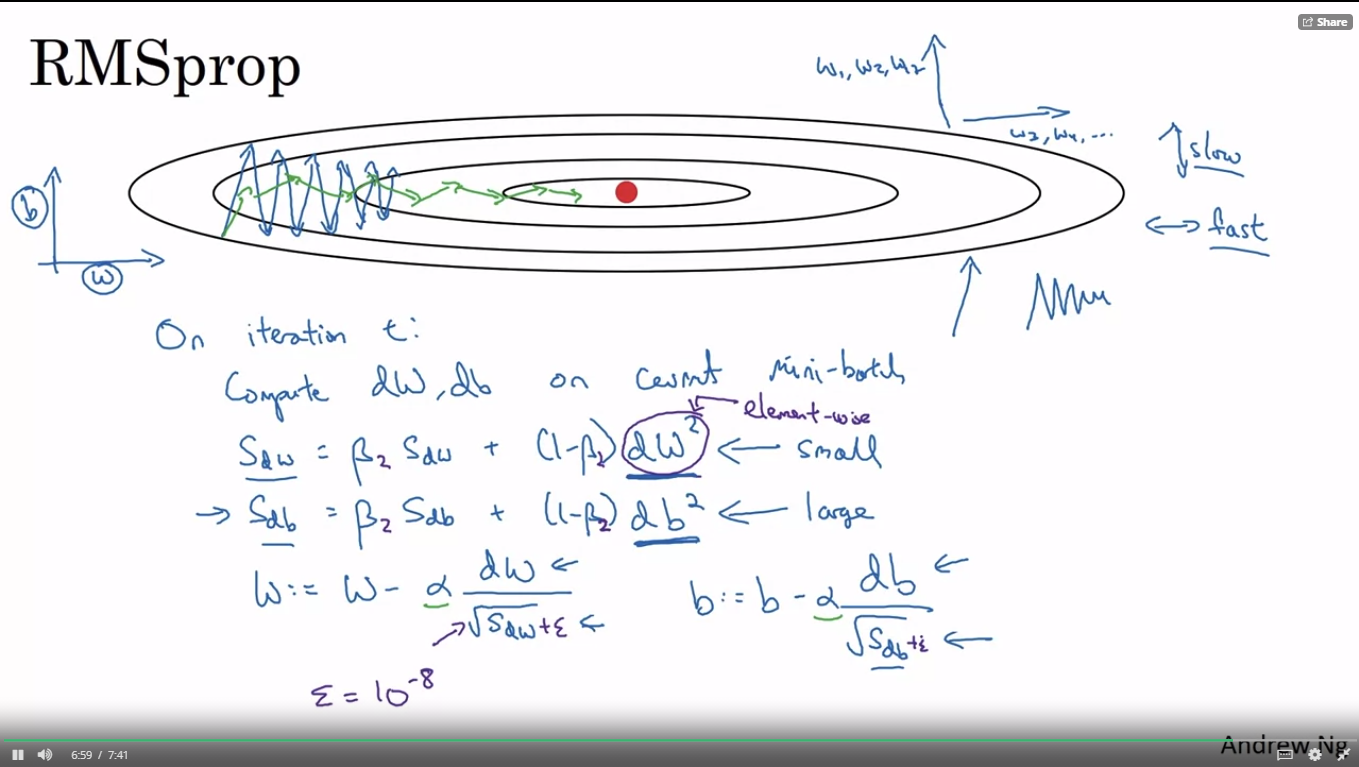 Share
RMSprop
w₁, w₂, w₂
w₃, w₄, ...
↕ slow
↔ fast
b
w
On iteration t:
Compute dW, db on current mini-batch
element-wise
S_dw = β₂ S_dw + (1-β₂) dW² ← small
→ S_db = β₂ S_db + (1-β₂) db² ← large
W := W - α dW / √S_dw + ε ←
b := b - α db / √S_db + ε ←
ε = 10⁻⁸
6:59 / 7:41
Andrew Ng